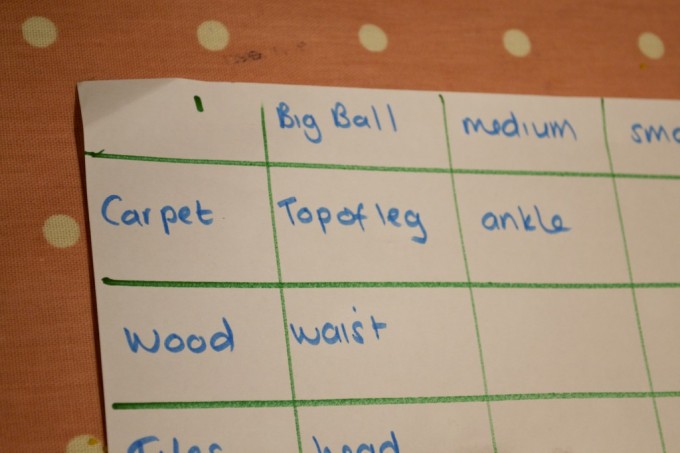 Big Ball medium sma
Carpet Top of leg ankle
Wood waist
Tiles head